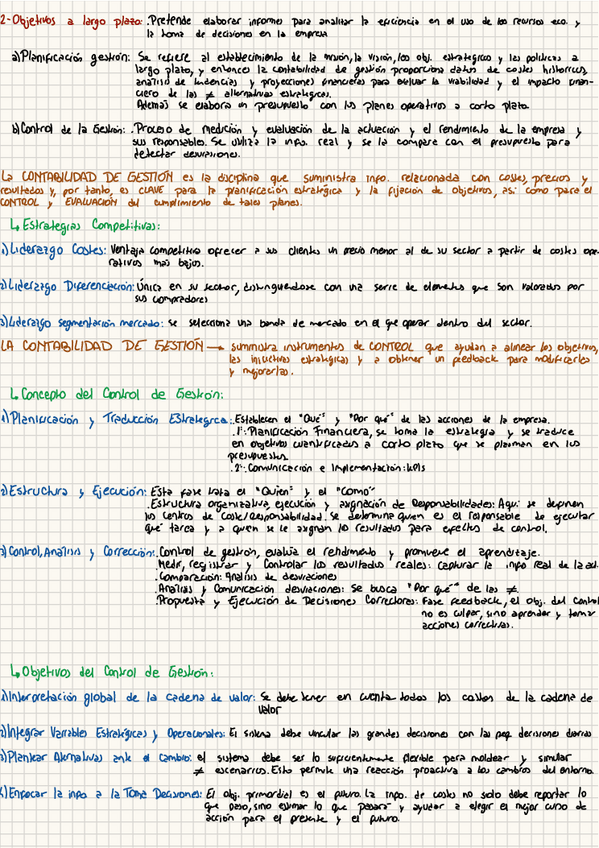 2-Objetivos a largo plazo: .Pretende elaborar informes para analizar la eficiencia en el uso de los recursos eco. y
la toma de decisiones en la empresa
a)Planificación gestión: Se refiere al establecimiento de la misión, la visión, los obj. estratégicos y las políticas a
largo plazo, y entonces la contabilidad de gestión proporciona datos de costes históricos,
análisis de tendencias y proyecciones financieras para evaluar la viabilidad y el impacto finan-
ciero de las ≠ alternativas estratégicas.
Además se elabora un presupuesto con los planes operativos a corto plazo.
b)Control de la Gestión: .Proceso de medición y evaluación de la actuación y el rendimiento de la empresa y
sus responsables. Se utiliza la info. real y se la compara con el presupuesto para
detectar desviaciones.
La CONTABILIDAD DE GESTIÓN es la disciplina que suministra info. relacionada con costes, precios y
resultados y, por tanto, es CLAVE para la planificación estratégica y la fijación de objetivos, así como para el
CONTROL y EVALUACIÓN del cumplimiento de tales planes.
↳ Estrategias Competitivas:
1)Liderazgo Costes: Ventaja competitiva ofrecer a sus clientes un precio menor al de su sector a partir de costes ope-
rativos más bajos.
2)Liderazgo Diferenciación: Única en su sector, distinguiéndose con una serie de elementos que son valorados por
sus compradores
3)Liderazgo segmentación mercado: se selecciona una banda de mercado en el que operar dentro del sector.
LA CONTABILIDAD DE GESTIÓN → suministra instrumentos de CONTROL que ayudan a alinear los objetivos,
las iniciativas estratégicas y a obtener un feedback para modificarlas
y mejorarlas.
↳ Concepto del Control de Gestión:
1)Planificación y Traducción Estratégica: .Establecen el "Qué" y "Por qué" de las acciones de la empresa.
.1º: Planificación Financiera, se toma la estrategia y se traduce
en objetivos cuantificados a corto plazo que se plasman en los
presupuestos.
.2º: Comunicación e Implementación: KPIs
2)Estructura y Ejecución: Esta fase trata el "Quién" y el "Cómo"
.Estructura organizativa, ejecución y asignación de Responsabilidades: Aquí se definen
los centros de Coste/Responsabilidad. Se determina quien es el responsable de ejecutar
qué tarea y a quien se le asignan los resultados para efectos de control.
3)Control, Análisis y Corrección: .Control de gestión, evalúa el rendimiento y promueve el aprendizaje.
.Medir, registrar y Controlar los resultados reales: capturar la info real de la ad.
.Comparación: Análisis de desviaciones
.Análisis y Comunicación desviaciones: Se busca "Por qué" de las ≠
.Propuesta y Ejecución de Decisiones Correctoras: Fase feedback, el obj. del Control
no es culpar, sino aprender y tomar
acciones correctivas.
↳ Objetivos del Control de Gestión:
1)Interpretación global de la cadena de valor: Se debe tener en cuenta todos los costos de la cadena de
valor
2)Integrar Variables Estratégicas y Operacionales: El sistema debe vincular las grandes decisiones con las peq. decisiones diarias
3)Plantear Alternativas ante el cambio: el sistema debe ser lo suficientemente flexible para moldear y simular
≠ escenarios. Esto permite una reacción proactiva a los cambios del entorno.
4)Enfocar la info a la Toma Decisiones: El obj. primordial es el futuro. La info. de costes no solo debe reportar lo
que pasó, sino estimar lo que pasará y ayudar a elegir el mejor curso de
acción para el presente y el futuro.